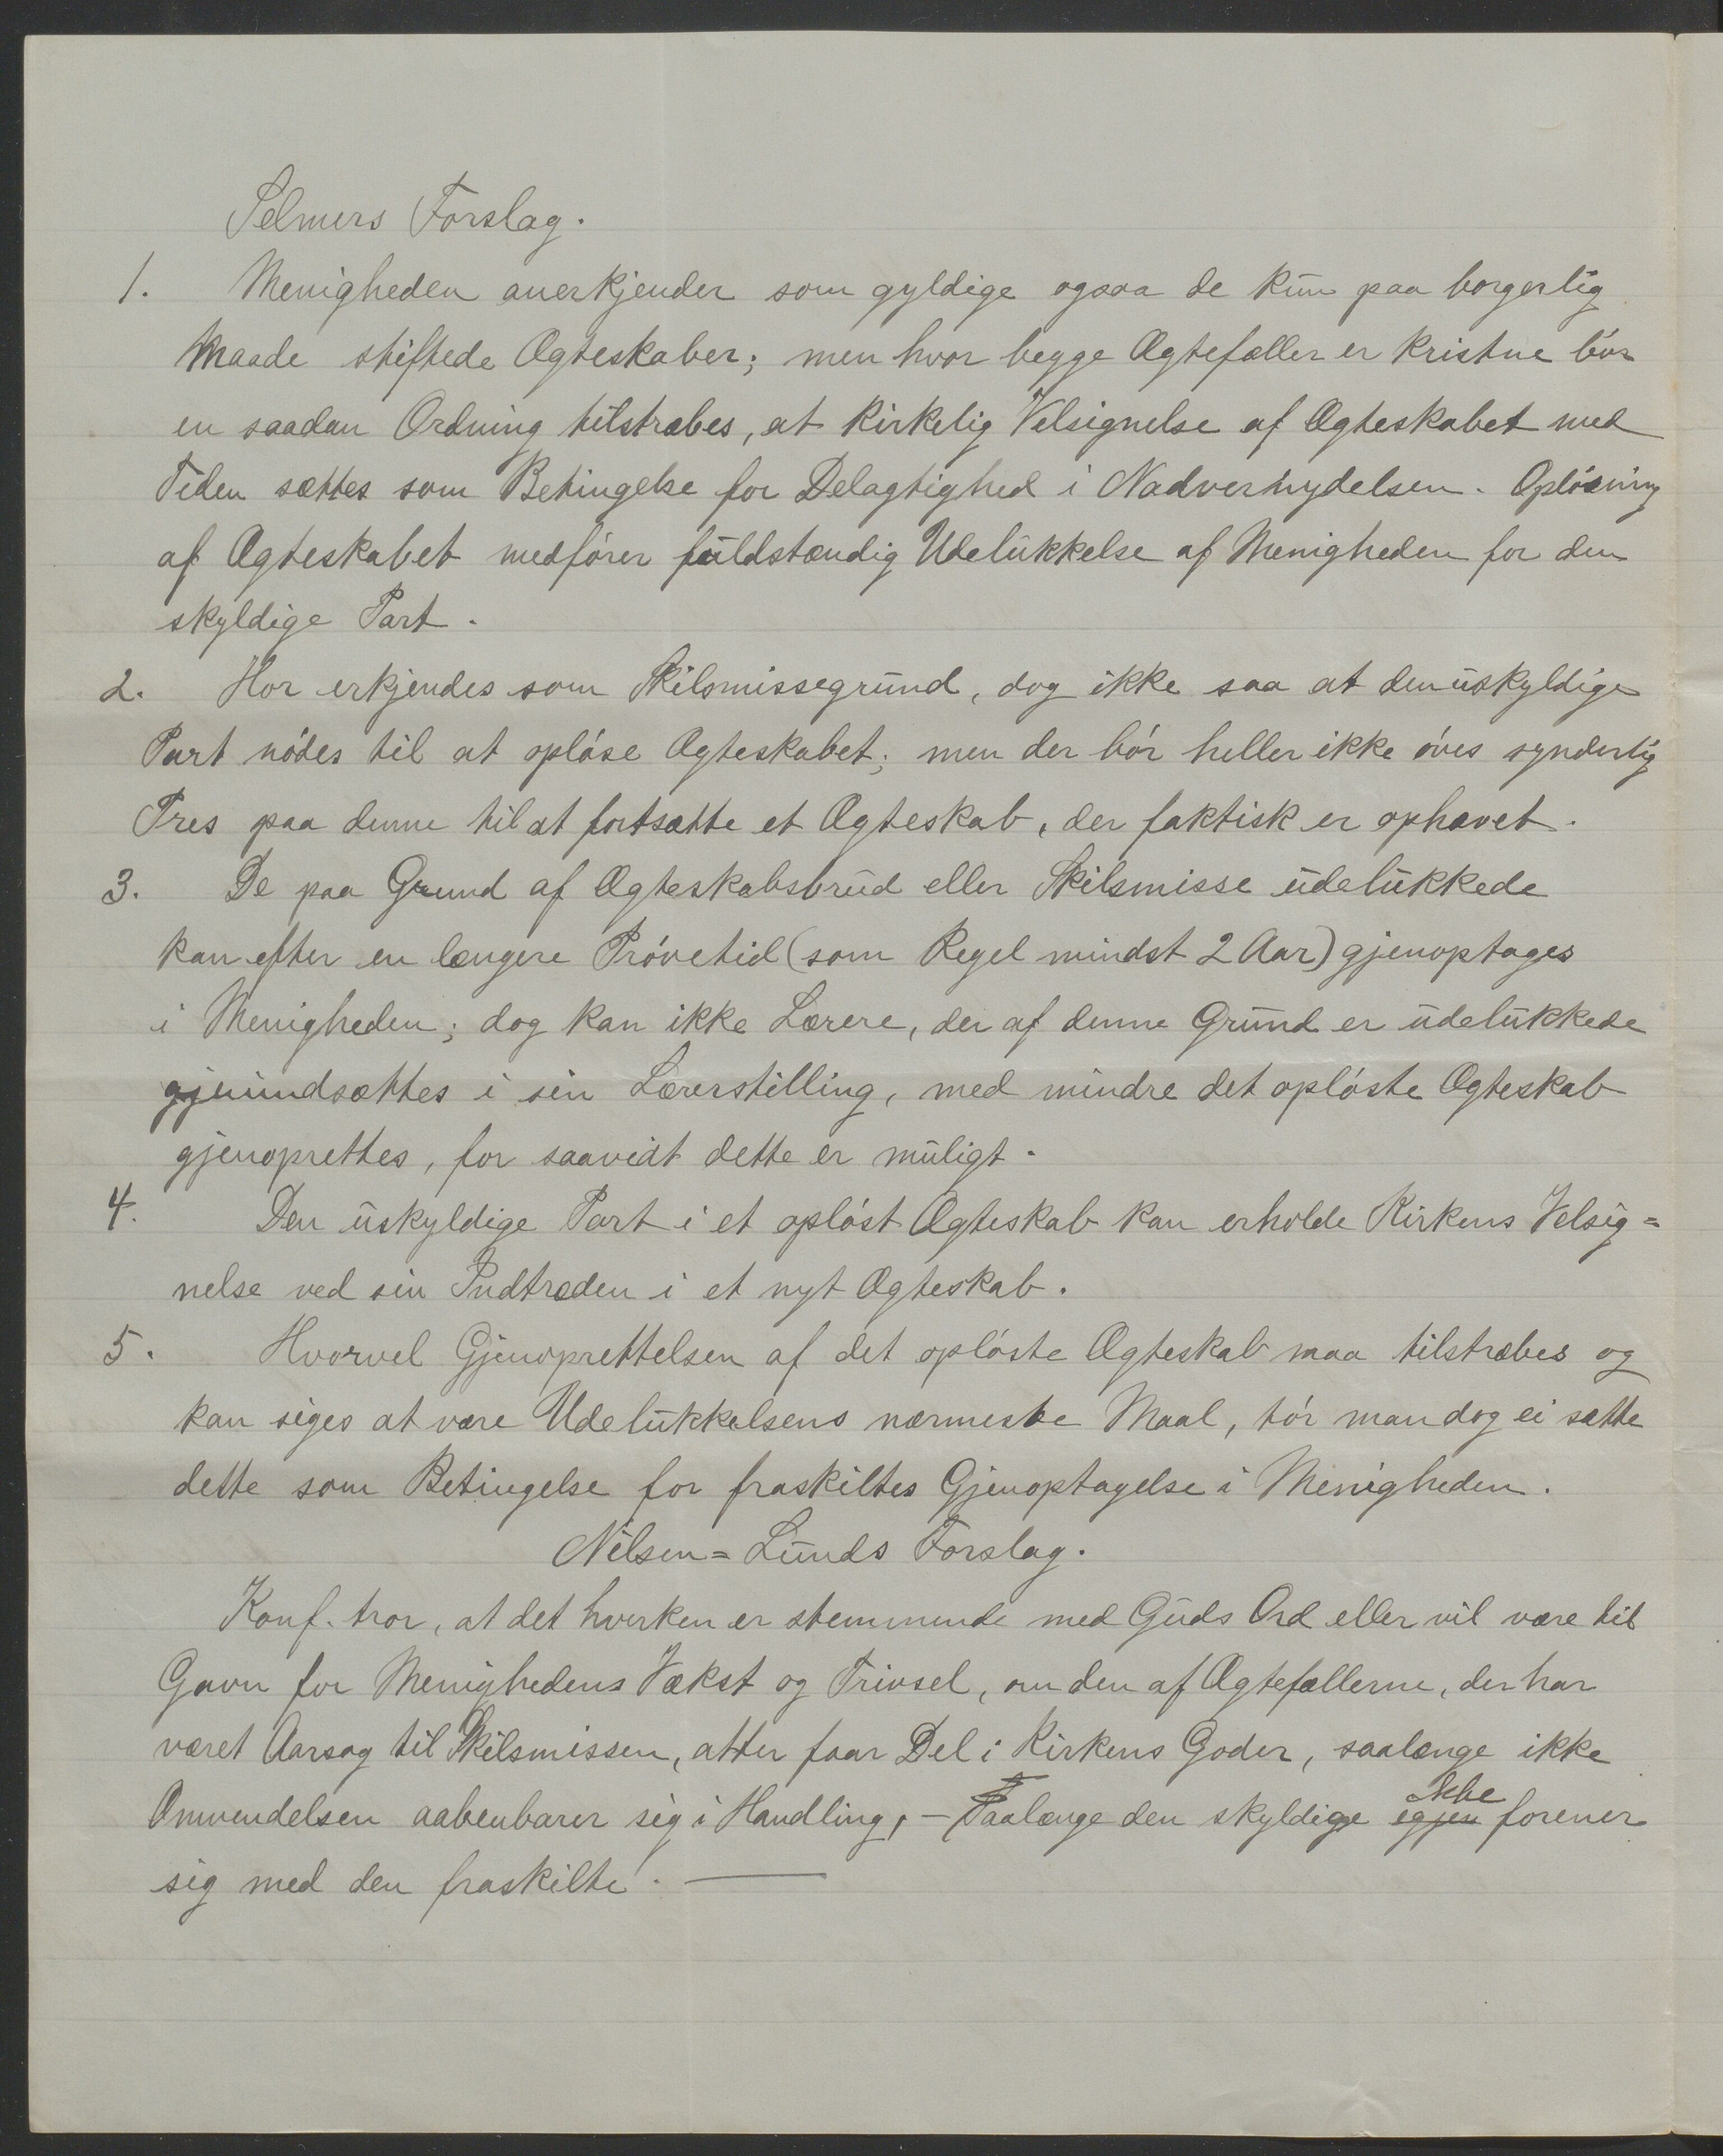 Selmers Forslag.
1. Menigheden anerkjender som gyldige ogsaa de kun paa borgerlig
Maade stiftede Ægteskaber; men hvor begge Ægtefæller er kristne bør
en saadan Ordning tilstræbes, at kirkelig Velsignelse af Ægteskabet med
Tiden sættes som Betingelse for Delagtighed i Nadvernydelsen. Opløsning
af Ægteskabet medfører fuldstændig Udelukkelse af Menigheden for den
skyldige Part.
2. Hor erkjendes som Skilsmissegrund, dog ikke saa at den uskyldige
Part nødes til at opløse Ægteskabet; men der bør heller ikke øves synderlig
Pres paa denne til at fortsætte et Ægteskab, der faktisk er ophævet.
3. De paa Grund af Ægteskabsbrud eller Skilsmisse udelukkede
kan efter en længere Prøvetid (som Regel mindst 2 Aar) gjenoptages
i Menigheden; dog kan ikke Lærere, der af denne Grund er udelukkede
gjenindsættes i sin Lærerstilling, med mindre det opløste Ægteskab
gjenoprettes, for saavidt dette er muligt.
4. Den uskyldige Part i et opløst Ægteskab kan erholde Kirkens Velsig=
nelse ved sin Indtræden i et nyt Ægteskab.
5. Hvorvel Gjenoprettelsen af det opløste Ægteskab maa tilstræbes og
kan siges at være Udelukkelsens nærmeste Maal, tør man dog ei sætte
dette som Betingelse for fraskiltes Gjenoptagelse i Menigheden.
Nilsen=Lunds Forslag.
Konf. tror, at det hverken er stemmende med Guds Ord eller vil være til
Gavn for Menighedens Vækst og Trivsel, om den af Ægtefællerne, der har
været Aarsag til Skilsmissen, atter faar Del i Kirkens Goder, saalænge ikke
Omvendelsen aabenbarer sig i Handling, – Saalænge den skyldige egjen ikke forener
sig med den fraskilte. —